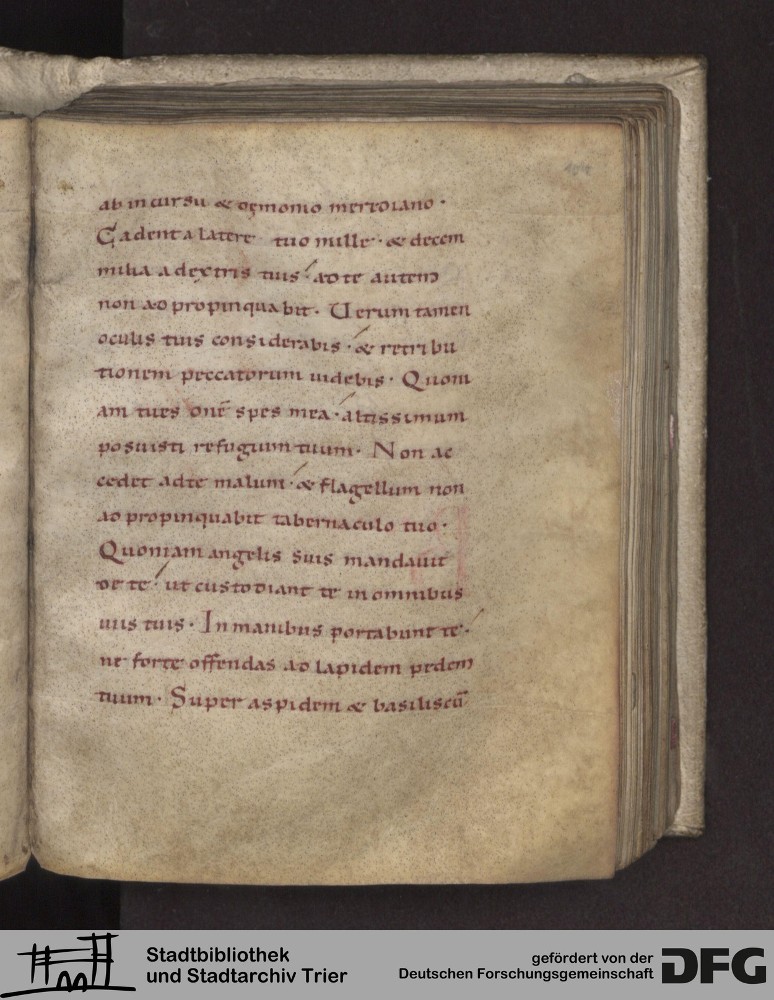 ab incursu & demonio meridiano ·
Cadent a latere tuo mille · & decem
milia a dextris tuis ·́ ad te autem
non adpropinquabit · Uerumtamen
oculis tuis considerabis ·́ & retribu
tionem peccatorum uidebis · Quoni
am tu es dnē spes mea ·́ altissimum
posuisti refugium tuum · Non ac
cedet ad te malum ·́ & flagellum non
adpropinquabit tabernaculo tuo ·
Quoniam angelis suis mandauit
de te ·́ ut custodiant te in omnibus
uiis tuis · In manibus portabunt te ·́
ne forte offendas ad lapidem pedem
tuum · Super aspidem & basiliscū
Stadtbibliothek
und Stadtarchiv Trier
gefördert von der
Deutschen Forschungsgemeinschaft
DFG